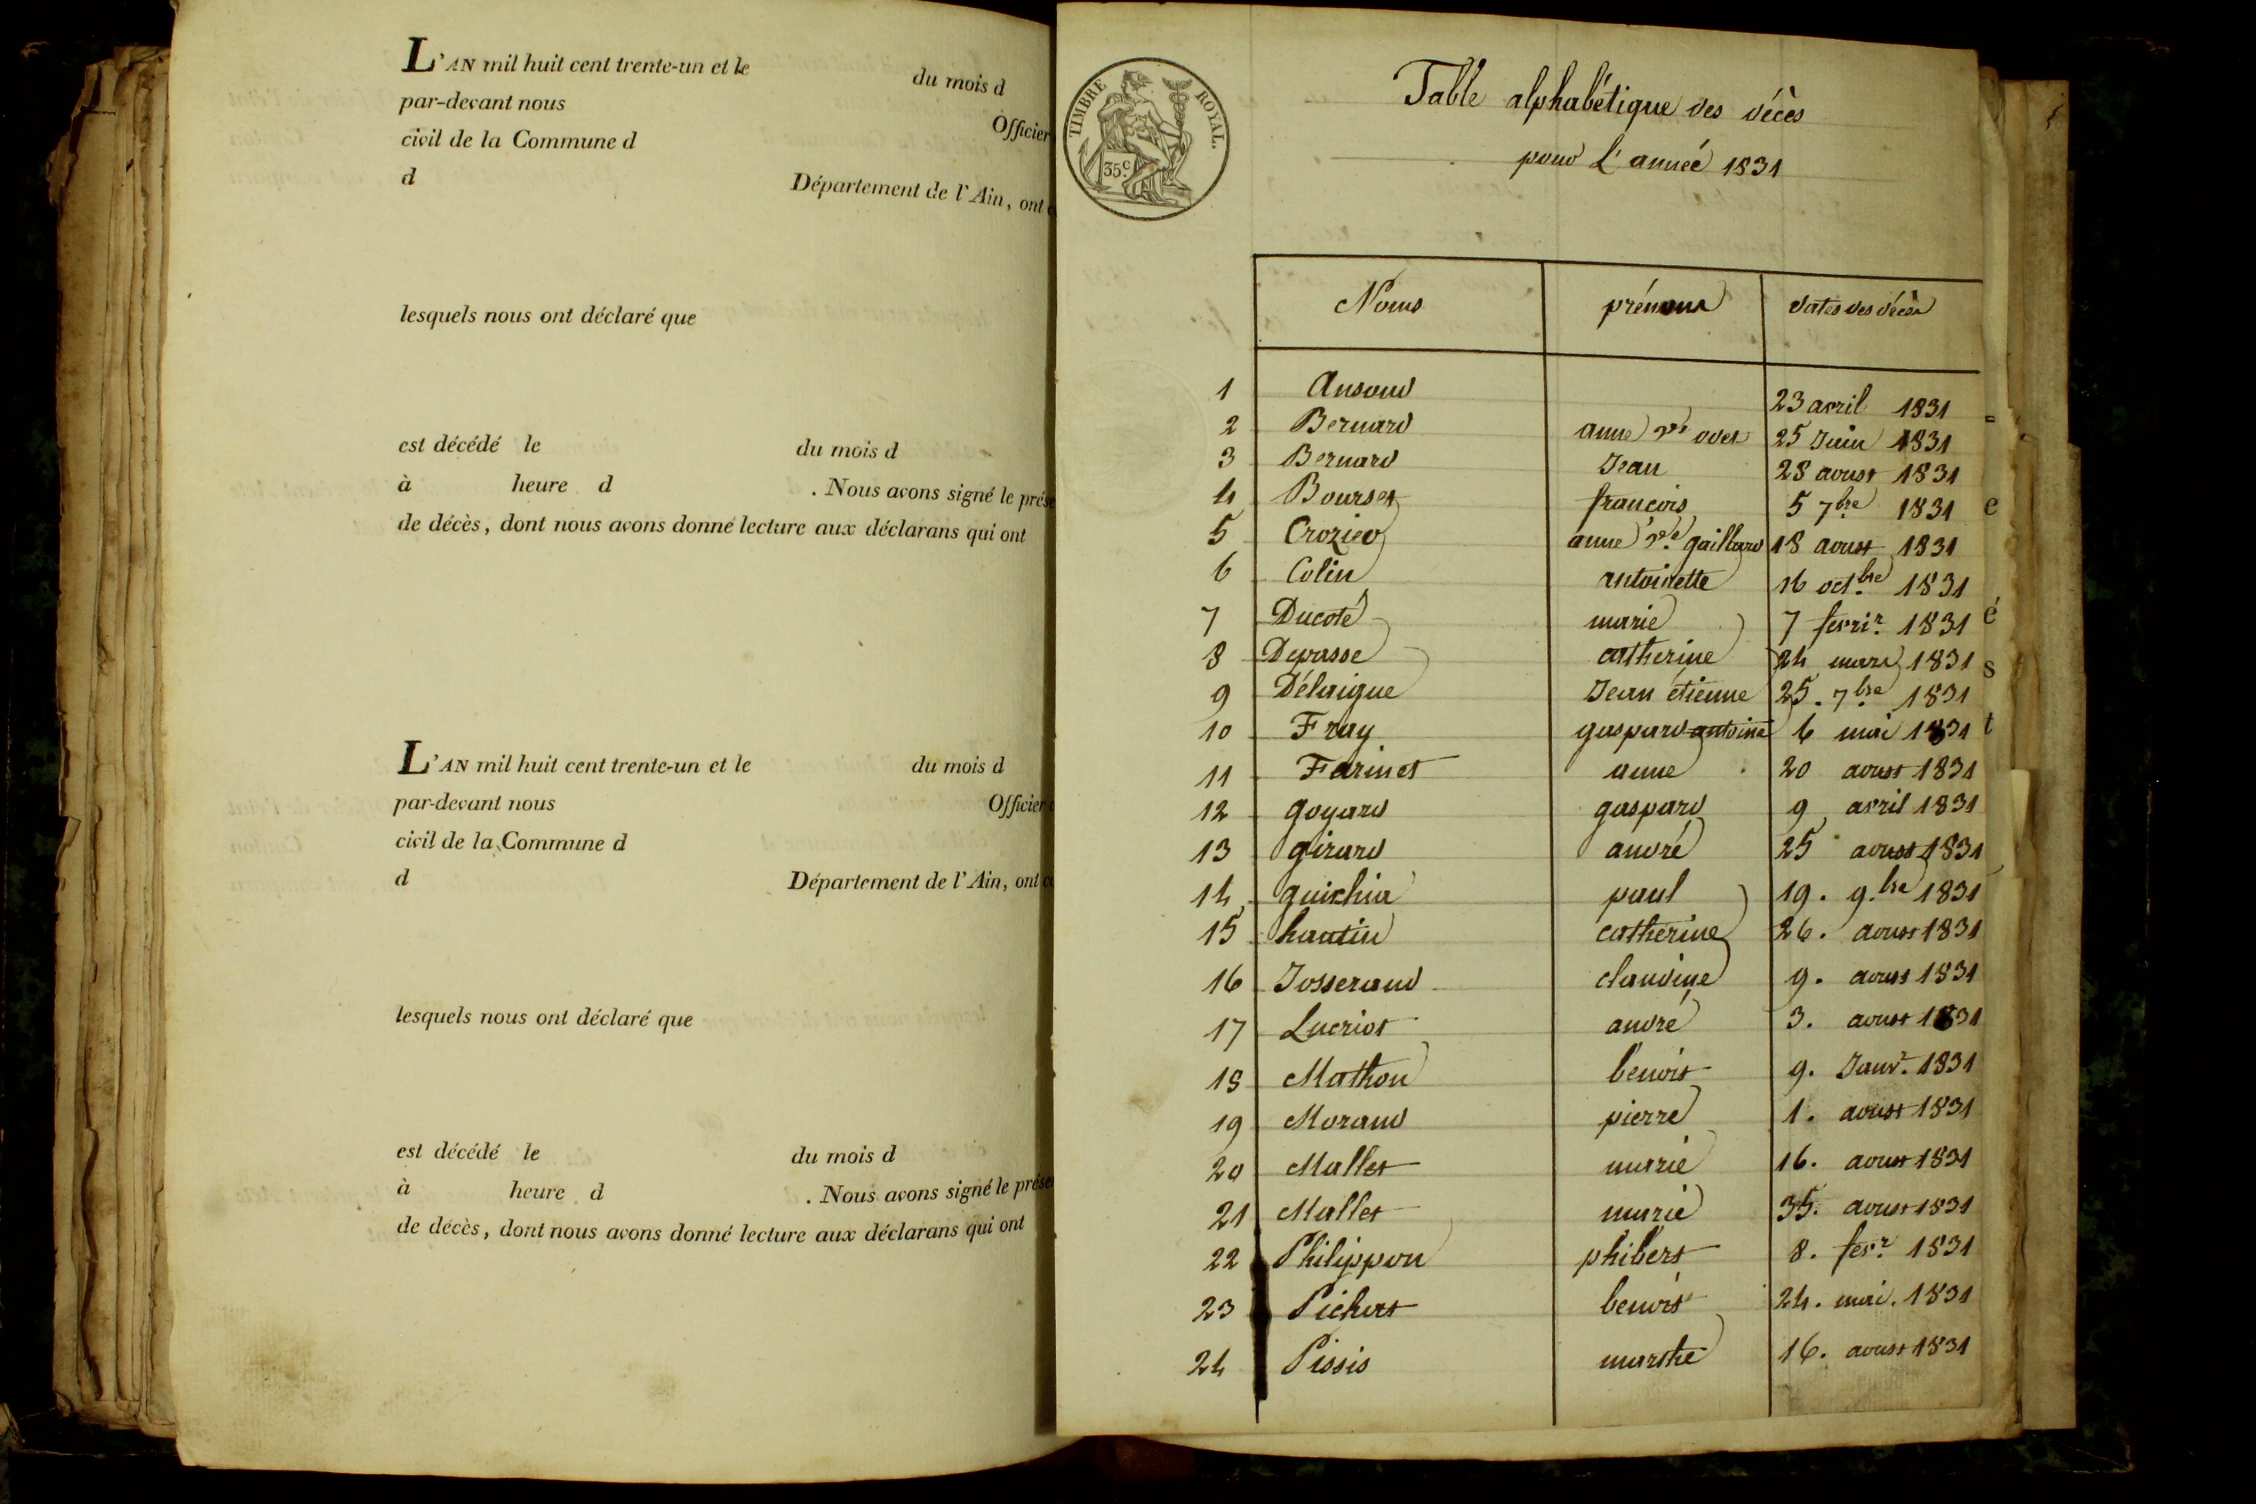 L'AN mil huit cent trente-un et le du mois d
par-devant nous Officier
civil de la Commune d
d Département de l'Ain, ont
lesquels nous ont déclaré que
est décédé le du mois d
à heure d . Nous avons signé le prése
de décès, dont nous avons donné lecture aux déclarans qui ont
L'AN mil huit cent trente-un et le du mois d
par-devant nous Officier
civil de la Commune d
d Département de l'Ain, ont
lesquels nous ont déclaré que
est décédé le du mois d
à heure d . Nous avons signé le prése
de décès, dont nous avons donné lecture aux déclarans qui ont
TIMBRE ROYAL.
35c.
Table alphabétique des décès
pour L'année 1831
Noms prénoms dates des décès
1 Ansoud 23 avril 1831
2 Bernard anne ve odet 25 Juin 1831
3 Bernard Jean 28 aoust 1831
4 Bourset francois 5 7bre 1831
5 Crozier anne ve. gaillard 18 aoust 1831
6 Colin antoinette 16 octbre 1831
7 Ducoté marie 7 fevrir. 1831
8 Depasse catherine 24 mars 1831
9 Délaigue Jean étienne 25. 7bre 1831
10 Fray gaspard antoine 6 mai 1831
11 Farinet anne 20 aoust 1831
12 goyard gaspard 9 avril 1831
13 girard andré 25 aoust 1831
14 guichia paul 19. 9.bre 1831
15 hautin catherine 26. aoust 1831
16 Josserand claudine 9. aoust 1831
17 Lucriot andré 3. aoust 1831
18 Mathon benoit 9. Janv. 1831
19 Morand pierre 1. aoust 1831
20 Mallet marie 16. aoust 1831
21 Mallet marie 35. aoust 1831
22 Philippon phibert 8. fevr. 1831
23 Pichat benoit 24. mai. 1831
24 Pissis marthe 16. aoust 1831
e
é
s
t